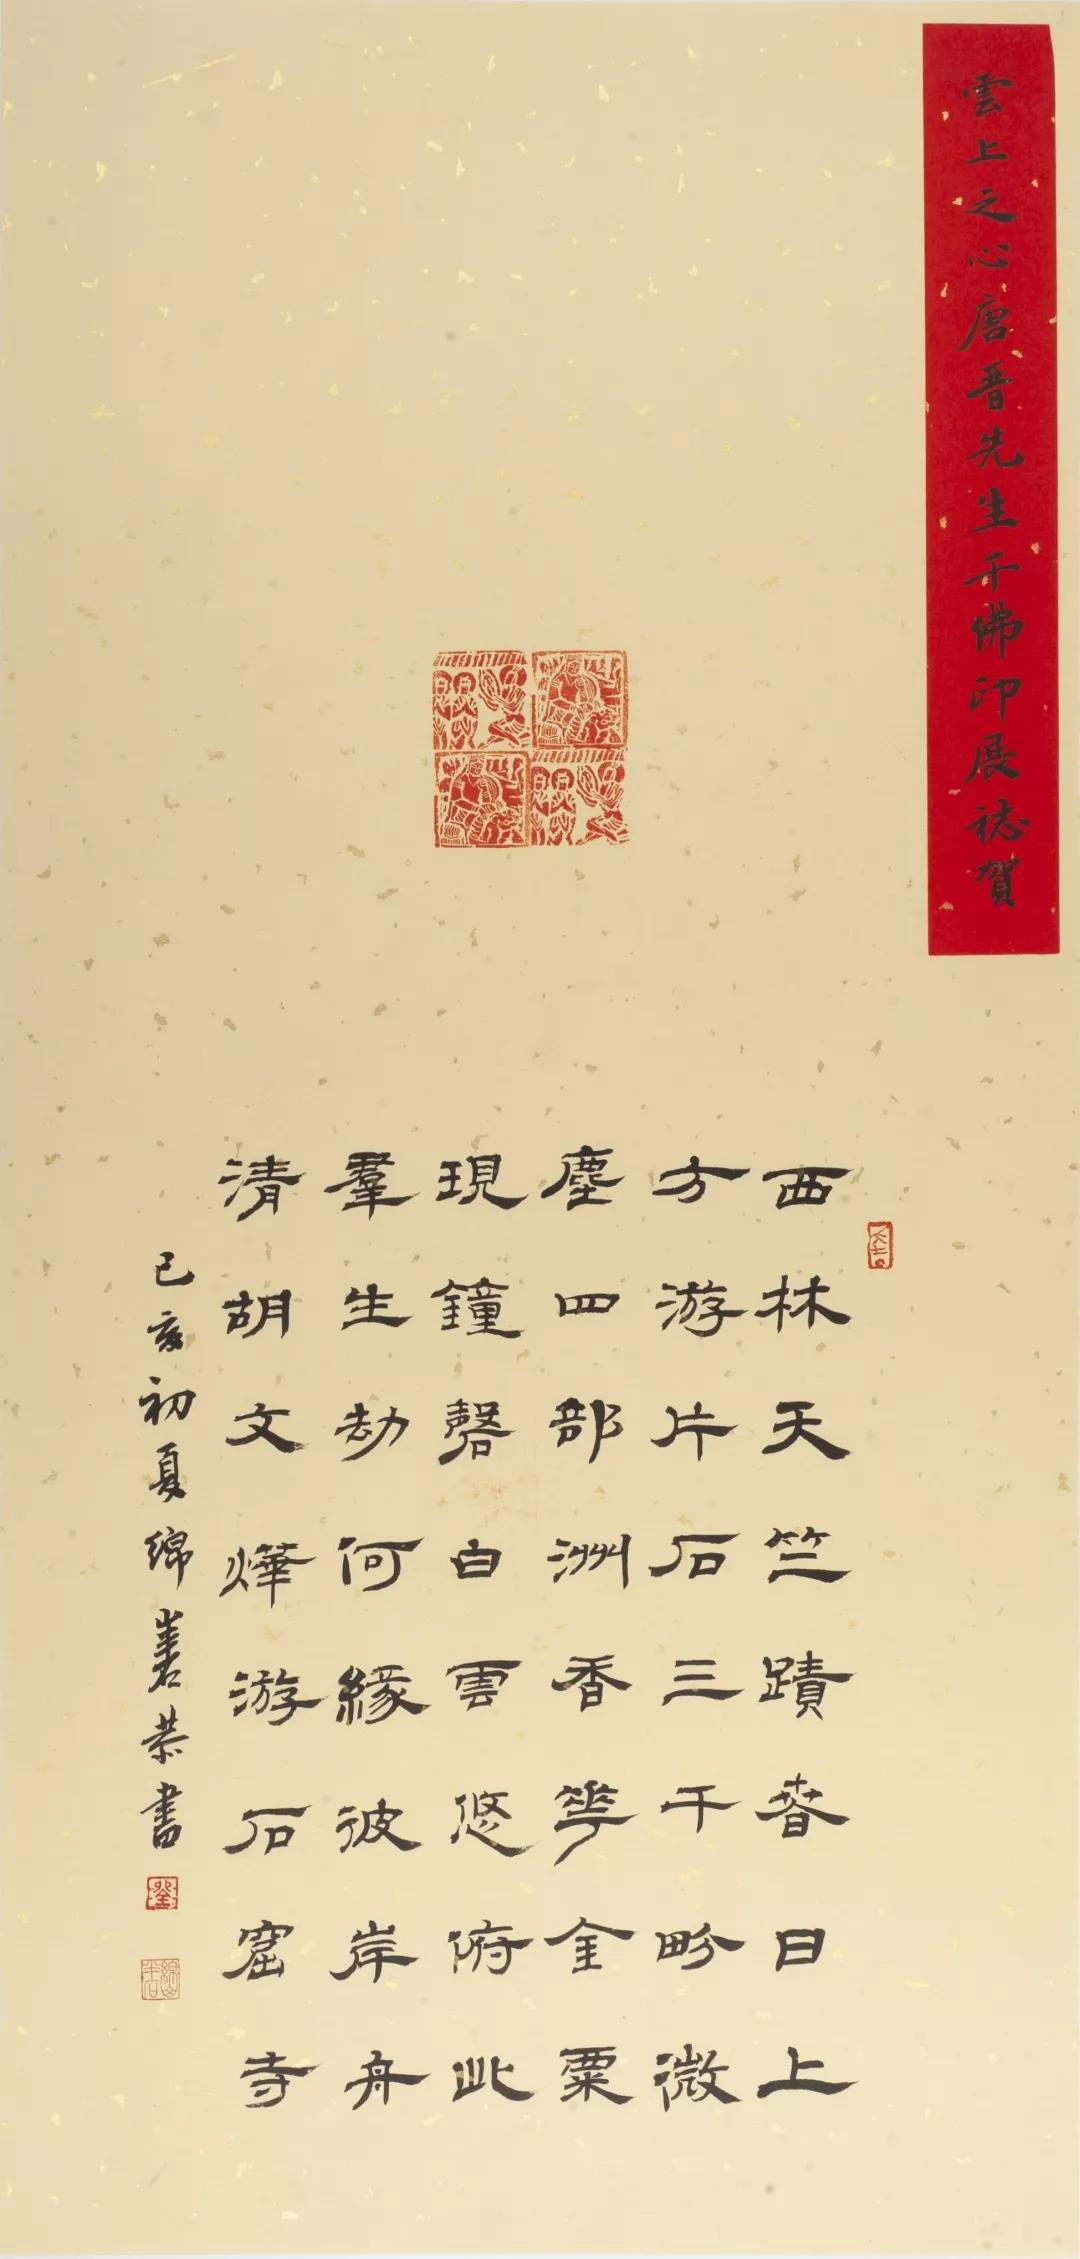 雲上之心唐晋先生千佛印展誌賀
西林天竺蹟春日上
方游片石三千畍微
塵四部洲香華金粟
現鐘磬白雲悠俯此
羣生劫何緣彼岸舟
清胡文燁游石窟寺
己亥初夏綿恭書
劉